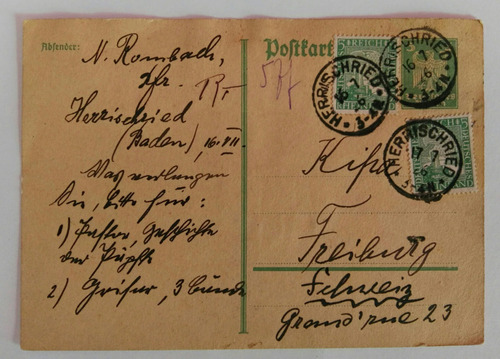 Absender:
N. Rombach,
Pfr.
Herrischried
(Baden), 16.VII.
Was verlangen
Sie, bitte für:
1) Pastor, Geschichte
der Päpste
2) Grisar, 3 Bände
Postkarte
DEUTSCHES REICH
HERRISCHRIED
16 7
HERRISCHRIED
16 7
HERRISCHRIED
17 7
Freiburg
Schweiz
Grand'rue 23